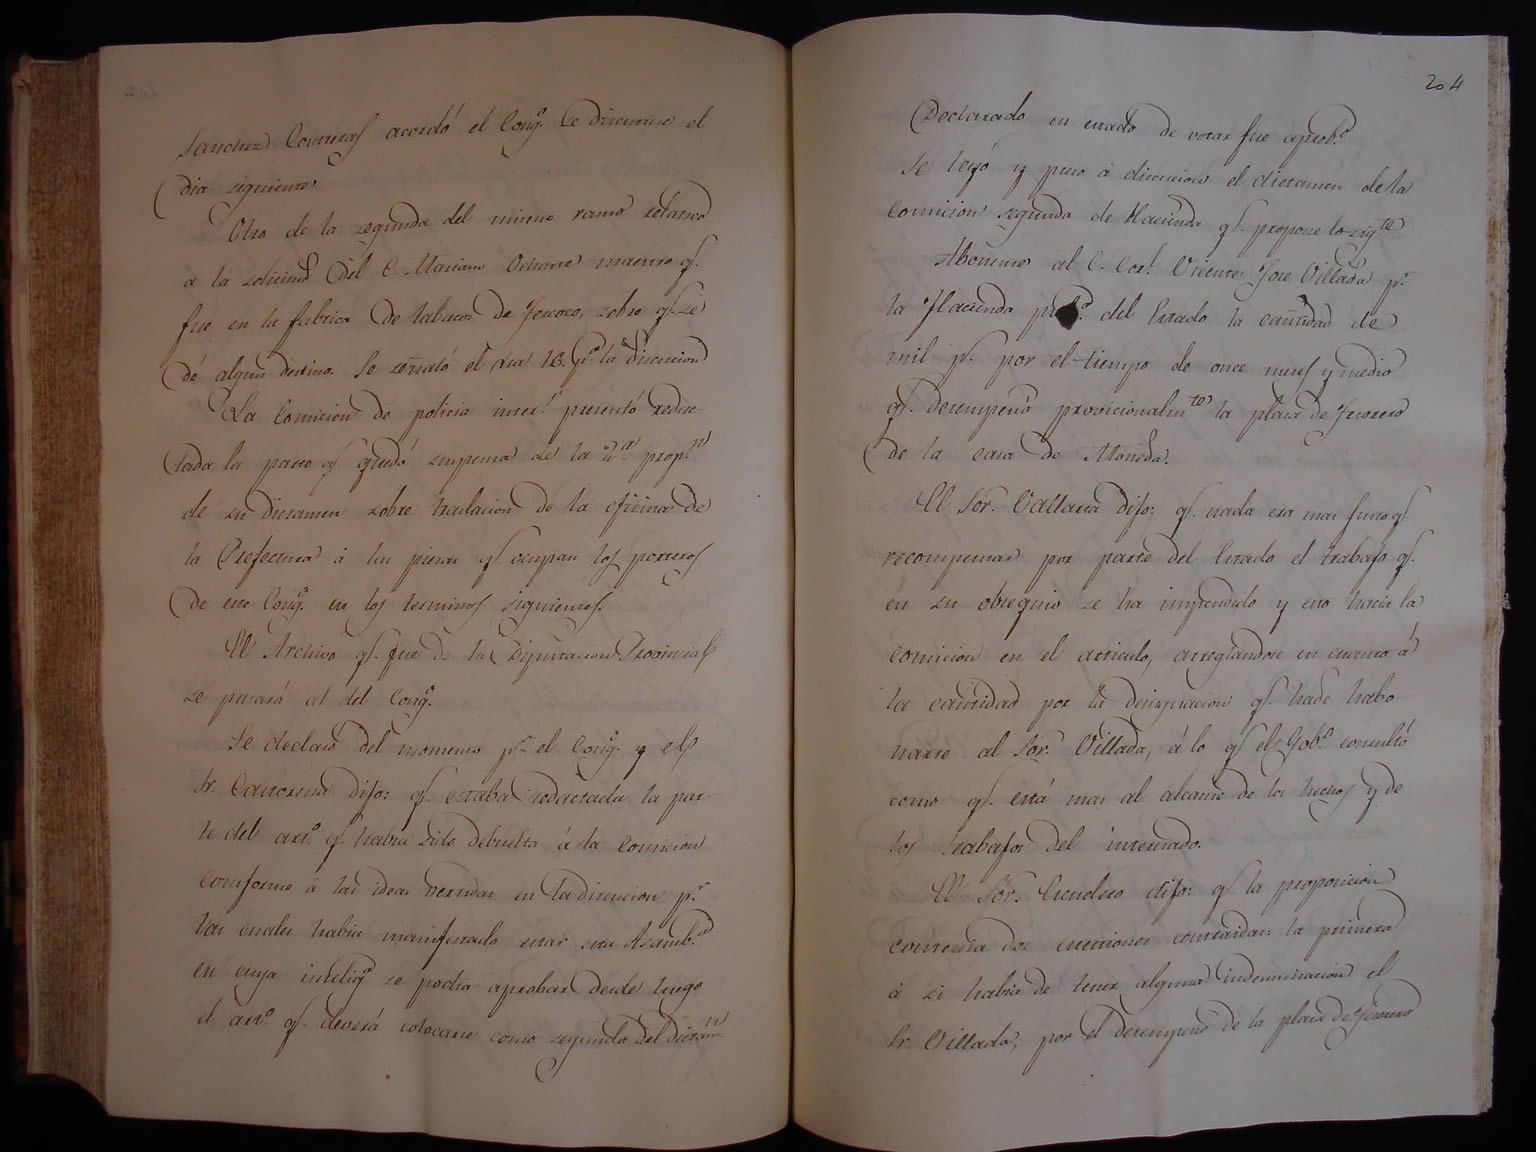 Sanchez Contreras acordó el Congº. se discutiese el
dia siguiente.
Otro de la segunda del mismo ramo relativo
a la solicitud del C. Mariano maestro qe.
fue en la fabrica de tabacos de Texcoco, sobre qe. se
dé algun destino. Se señaló el dia 16. pª. la discucion
La Comicion de policia interr. presentó redac-
tada la parte qe. quedó suspensa de la 2.ª propn.
de su dictamen sobre traslacion de la oficina de
la Prefectura á las piezas qe. ocupan los porteros
de este Congº. en los terminos siguientes.
El Archivo qe. fue de la Diputacion Provincial
se pasará al del Congº.
Se declaró del momento pr. el Congº. y el
Sr. dijo: qe. estaba redactada la par-
te del artº. qe. habia sido debuelta á la Comicion
conforme á las ideas vertidas en la discucion pr.
las cuales habia manifestado estar esta Asambª.
en cuya inteligª se podia aprobar desde luego
el artº. qe. deverá colocarse como segundo del dictamn.
204
Declarado en estado de votar fue aprobº.
Se leyó y puso á discucion el dictamen de la
Comicion segunda de Hacienda qe. propone lo sigte.
Abonense al C. Corl. Vicente Jose Villada pr.
la Hacienda pubª. del Estado la cantidad de
mil ps. por el tiempo de once meses y medio
qe. desempeñó provicionalmte. la plaza de Tesorero
de la casa de Moneda.
El Sor. Valtarra dijo: qe. nada era mas justo qe
recompensar por parte del Estado el trabajo qe.
en su obsequio se ha imprendido y eso hacia la
comicion en el articulo, arreglandose en cuanto á
la cantidad por la designacion qe. ha de habo
narse al Sor. Villada, á lo qe. el Gobº. consultó
como qe. está mas al alcance de los hechos y de
los trabajos del interesado.
El Sor. Escudero dijo: qe. la proposicion
contenia dos cuestiones contraidas: la primera
á si habia de tener alguna indemnisacion el
Sr. Villada, por el desempeño de la plaza de Tesorero